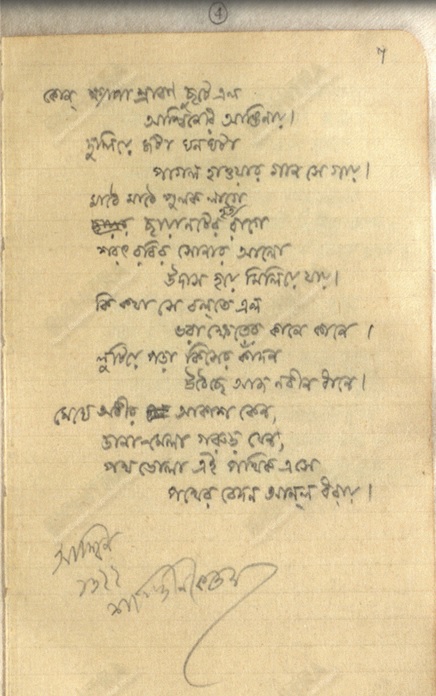 ④
7
কোন্ খ্যাপা শ্রাবণ ছুটে এল
আশ্বিনেরই আঙিনায়।
দুলিয়ে জটা ঘনঘটা
পাগল হাওয়ার গান সে গায়।
মাঠে মাঠে পুলক লাগে
ছায়ানটের নৃত্য রাগে
শরৎ রবির সোনার আলো
উদাস হয়ে মিলিয়ে যায়।
কি কথা সে বলতে এল
ভরা ক্ষেতের কানে কানে।
লুটিয়ে পড়া কিসের কাঁদন
উঠেছে আজ নবীন ধানে।
মেঘে অধীর আকাশ কেন,
ডানা-মেলা গরুড় যেন,
পথ ভোলা এই পথিক এসে
পথের বেদন আনল ধরায়।
আশ্বিন
শান্তিনিকেতন